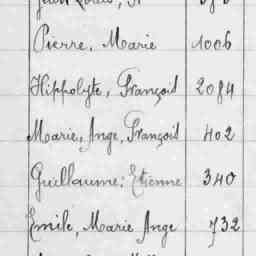 Pierre, Marie 1006
Hippolyte, François 2084
Marie, Ange, François 402
Guillaume, Etienne 340
Emile, Marie Ange 732